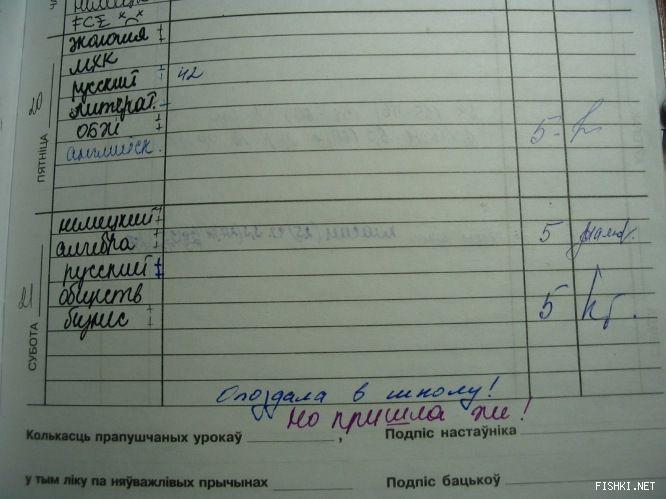 FCE
экология
МХК
русский 42
литерат.
ОБЖ 5-
английск.
ПЯТНІЦА 20
немецкий
алгебра 5
русский
обществ
бизнес 5
СУБОТА 21
Опоздала в школу!
Но пришла же!
Колькасць прапушчаных урокаў , Подпіс настаўніка
у тым ліку па няўважлівых прычынах Подпіс бацькоў
FISHKI.NET